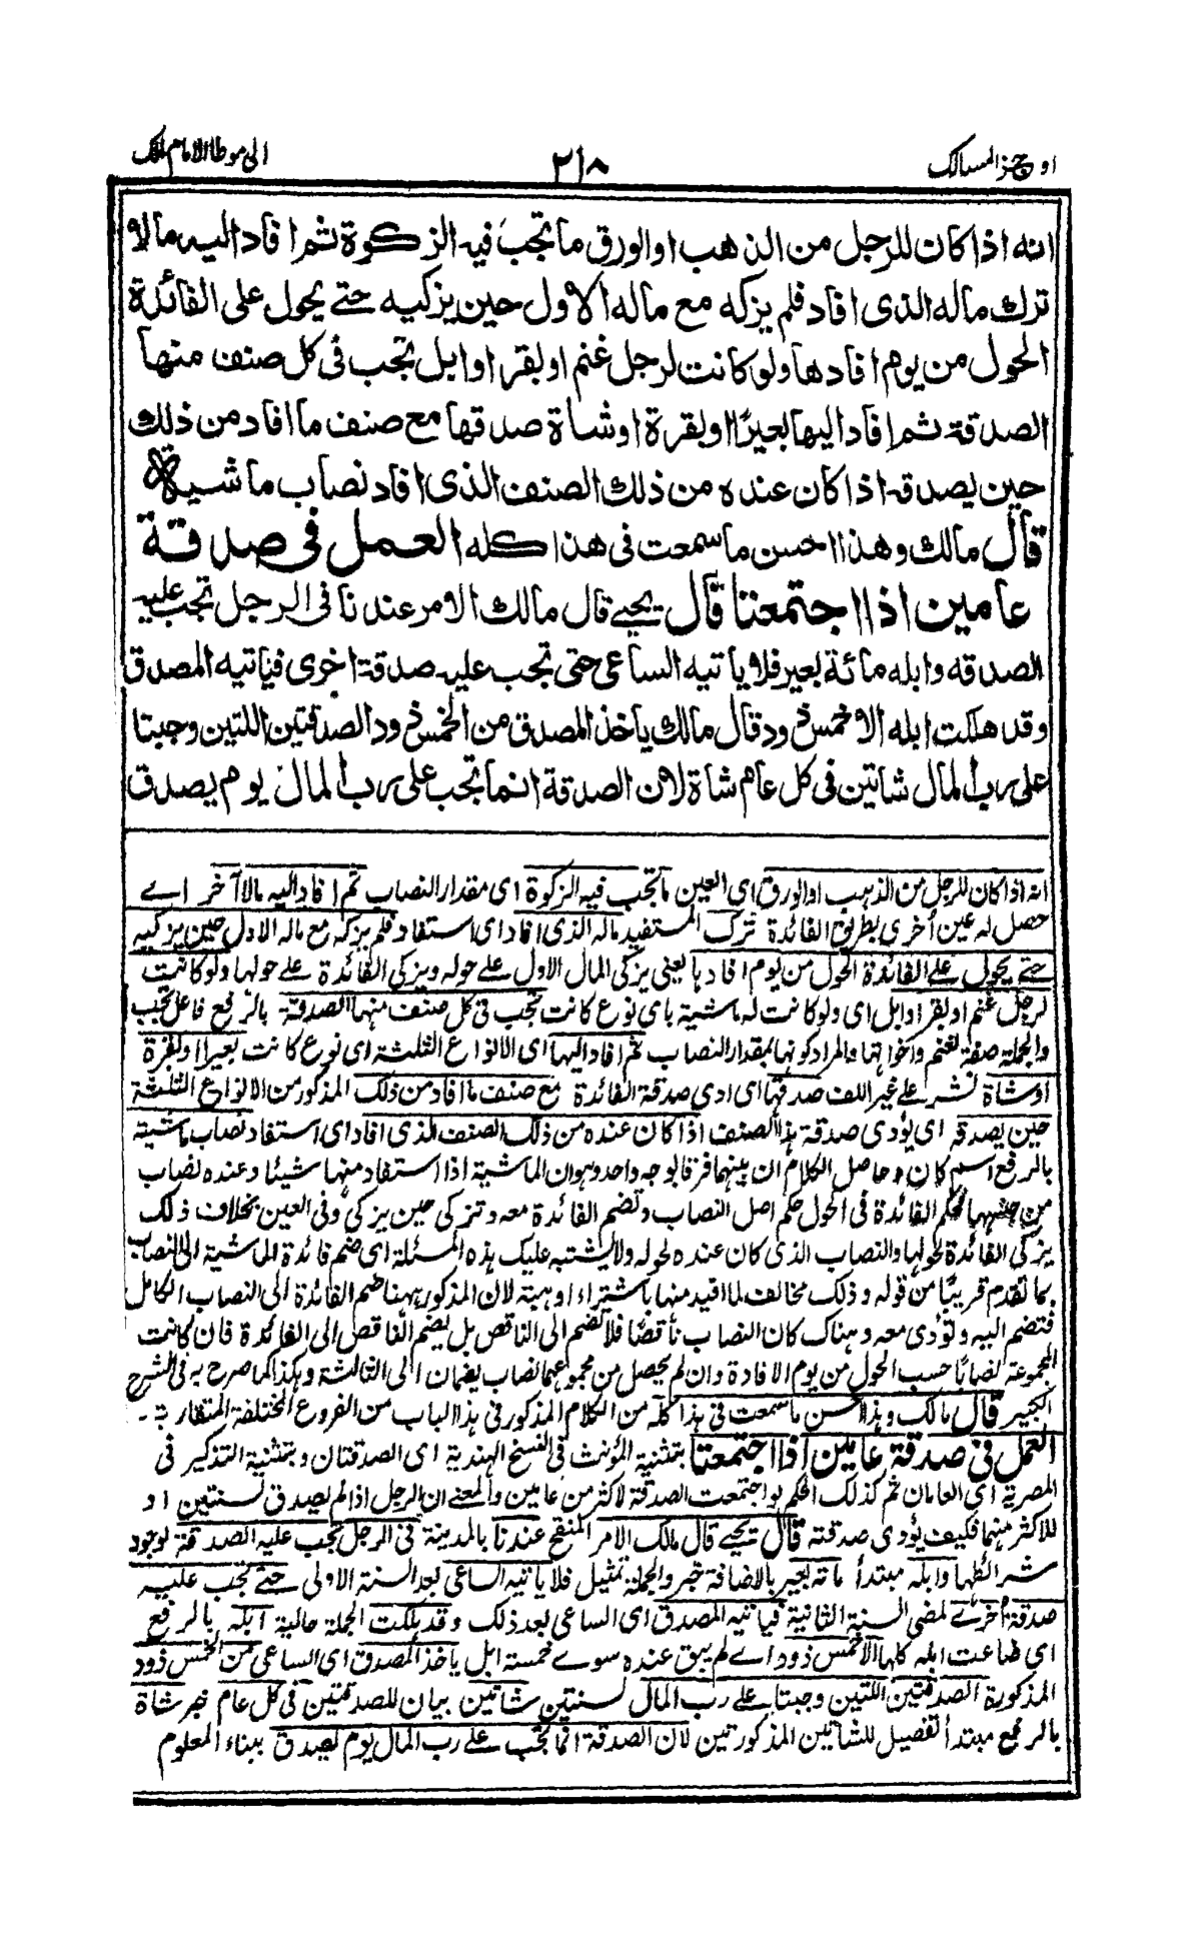 اوجز المسالك ٢١٨ الى موطا الامام مالك
انه اذا كان للرجل من الذهب او الورق ما تجب فيه الزكوة ثم افاد اليه مالا
ترك ماله الذى افاد فلم يزكه مع ماله الاول حين يزكيه حتے يحول على الفائدة
الحول من يوم افادها ولو كانت لرجل غنم او بقر او ابل تجب فى كل صنف منها
الصدقة ثم افاد اليها بعيرًا او بقرة او شاة صدقها مع صنف ما افاد من ذلك
حين يصدقه اذا كان عنده من ذلك الصنف الذى افاد نصاب ماشية
قال مالك وهذا احسن ما سمعت فى هذا كله العمل فى صدقة
عامين اذا اجتمعتا قال يحيے قال مالك الامر عندنا فى الرجل تجب عليه
الصدقه وابله مائة بعير فلا ياتيه الساعى حتى تجب عليه صدقة اخرى فياتيه المصدق
وقد هلكت ابله الا خمس ذود قال مالك ياخذ المصدق من الخمس ذود الصدقتين اللتين وجبتا
على رب المال شاتين فى كل عام شاة لان الصدقة انما تجب على رب المال يوم يصدق
انه اذا كان للرجل من الذهب او الورق اى العين ما تجب فيه الزكوة اى مقدار النصاب ثم افاد اليه مالا آخر اے
حصل له عين اخرى بطريق الفائدة ترك المستفيد ماله الذى افاد اى استفاد فلم يزكه مع ماله الاول حين يزكيه
حتے يحول علے الفائدة الحول من يوم افادها يعنى يزكى المال الاول علے حوله ويزكى الفائدة علے حولها ولو كانت
لرجل غنم او بقر او ابل اى ولو كانت له ماشية باى نوع كانت تجب فى كل صنف منها الصدقة بالرفع فاعل تجب
والجملة صفة لغنم واخواتها والمراد كونها بمقدار النصاب ثم افاد اليها اى الانواع الثلثة اى نوع كانت بعيرا او بقرة
او شاة نشر علے غير اللف صدقها اى ادى صدقة الفائدة مع صنف ما افاد من ذلك المذكور من الانواع الثلثة
حين يصدقه اى يؤدى صدقة هذا الصنف اذا كان عنده من ذلك الصنف الذى افاد اى استفاد نصاب ماشية
بالرفع اسم كان وحاصل الكلام ان بينهما فرقا بوجه واحد وهو ان الماشية اذا استفاد منها شيئا وعنده نصاب
من جنسها فحكم الفائدة فى الحول حكم اصل النصاب وتضم الفائدة معه وتزكى حين يزكى وفى العين بخلاف ذلك
يزكى الفائدة لحولها والنصاب الذى كان عنده لحوله ولا يشتبه عليك هذه المسئلة اى ضم فائدة الماشية الى النصاب
بما تقدم قريبًا من قوله وذلك مخالف لما افيد منها باشتراء او هبة لان المذكور ههنا ضم الفائدة الى النصاب الكامل
فتضم اليه وتؤدى معه وهناك كان النصاب ناقصًا فلا تضم الى الناقص بل يضم الناقص الى الفائدة فان كانت
المجموعة نصابًا حسب الحول من يوم الافادة وان لم يحصل من مجموعهما نصاب يضمان الى الثالثة وهكذا كما صرح به فى الشرح
الكبير قال مالك وهذا احسن ما سمعت فى هذا كله من الكلام المذكور فى هذا الباب من الفروع المختلفة المتقاربة -
العمل فى صدقة عامين اذا اجتمعتا بتثنية المؤنث فى النسخ الهندية اى الصدقتان وبتثنية التذكير فى
المصرية اى العامان ثم كذلك الحكم لو اجتمعت الصدقة لاكثر من عامين والمعنى ان الرجل اذا لم يصدق لسنتين او
للاكثر منهما فكيف يؤدى صدقته قال يحيے قال مالك الامر المنقح عندنا بالمدينة فى الرجل تجب عليه الصدقة لوجود
شرائطها وابله مبتدأ مائة بعير بالاضافة خبر والجملة تمثيل فلا ياتيه الساعى بعد السنة الاولى حتے تجب عليه
صدقة اخرے لمضى السنة الثانية فياتيه المصدق اى الساعى بعد ذلك وقد هلكت الجملة حالية ابله بالرفع
اى ضاعت ابله كلها الا خمس ذود اے لم يبق عنده سوے خمسة ابل ياخذ المصدق اى الساعى من الخمس ذود
المذكورة الصدقتين اللتين وجبتا علے رب المال لسنتين شاتين بيان للصدقتين فى كل عام خبر شاة
بالرفع مبتدأ تفصيل للشاتين المذكورتين لان الصدقة انما تجب علے رب المال يوم يصدق ببناء المعلوم